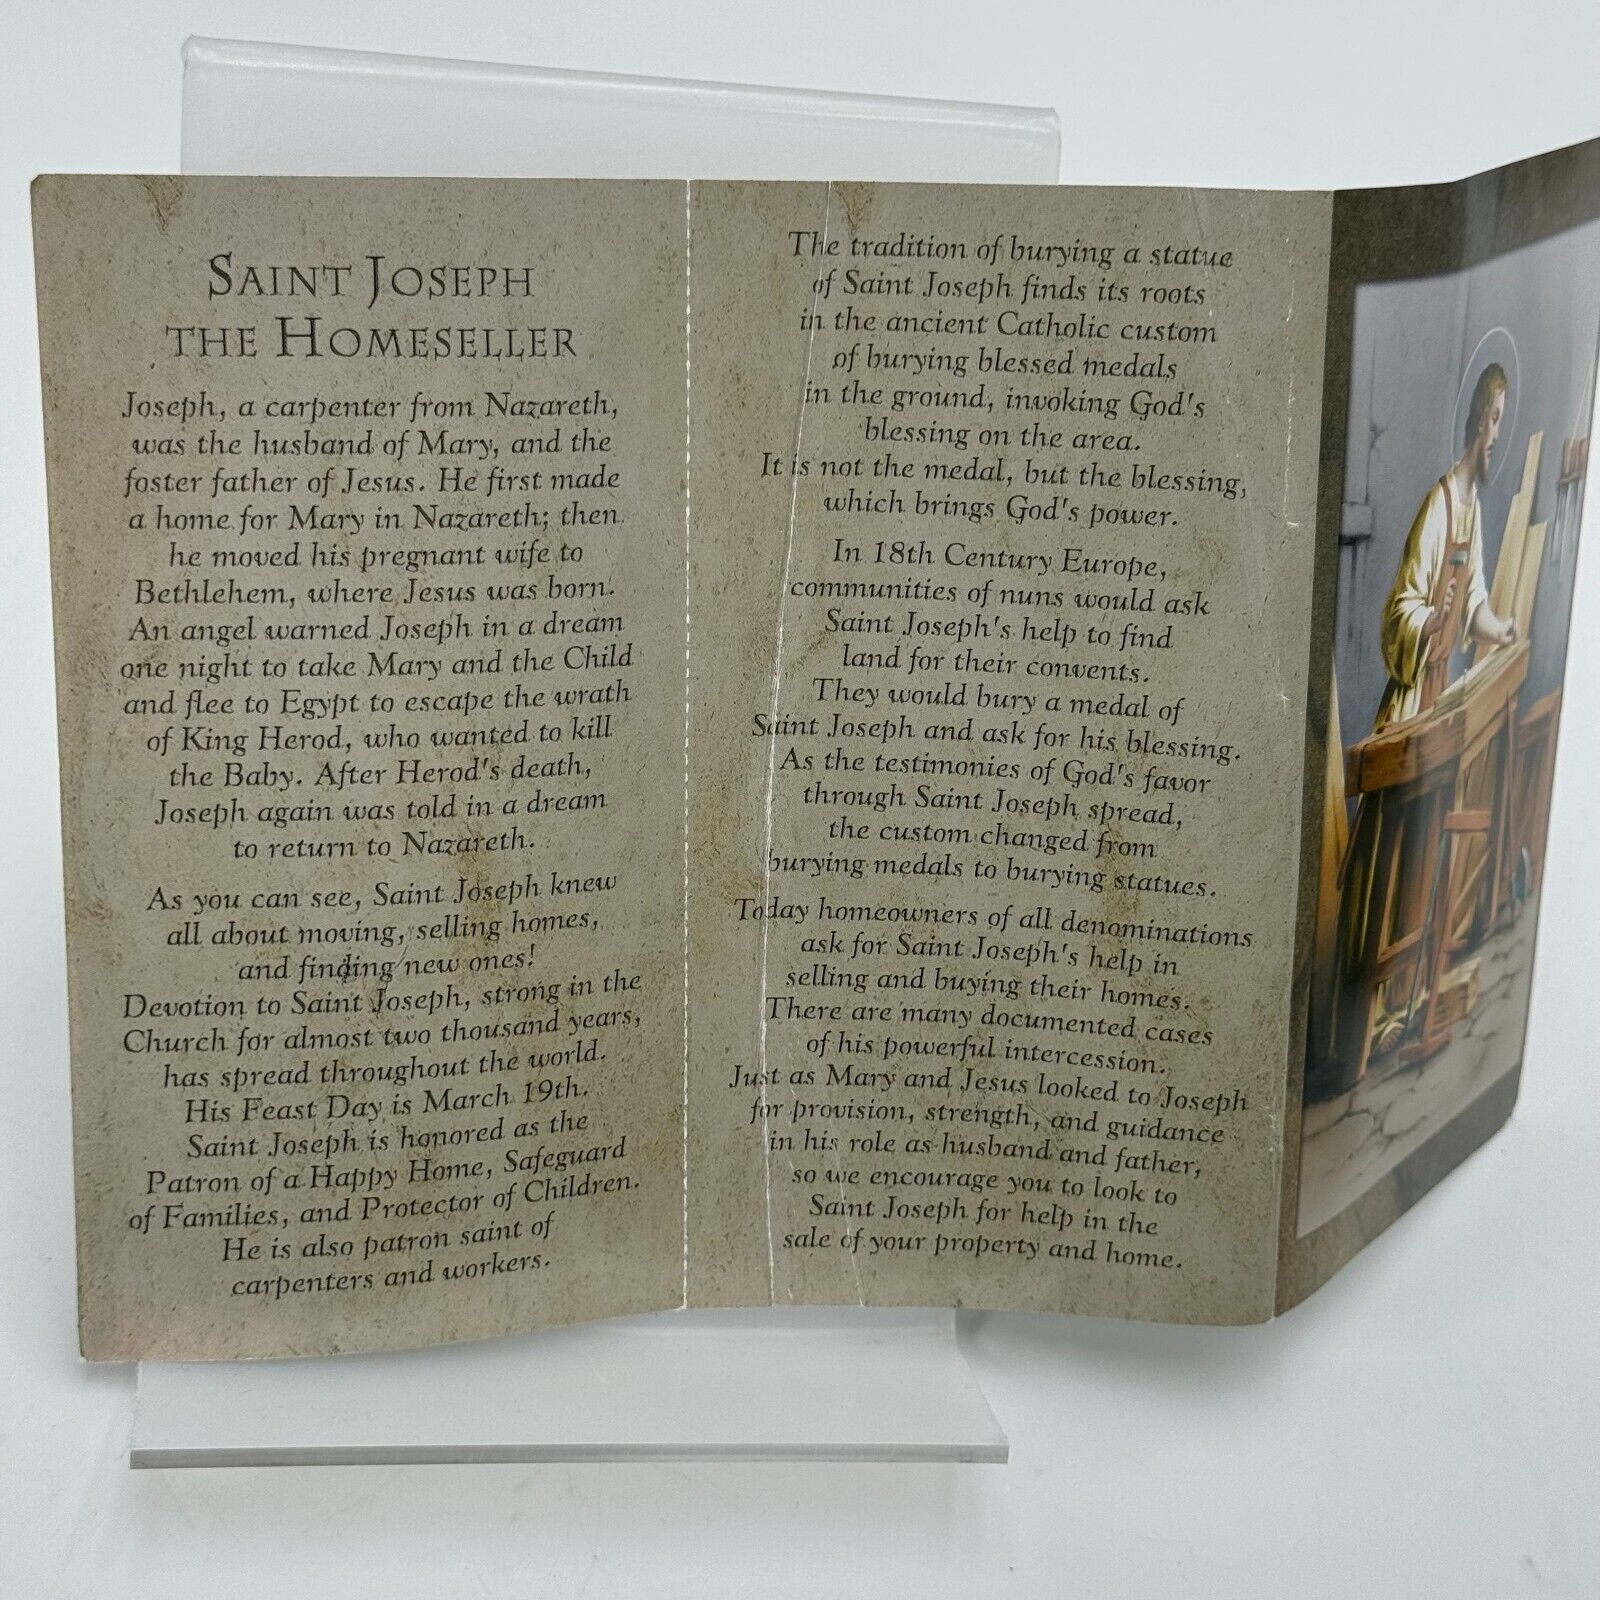 SAINT JOSEPH
THE HOMESELLER
Joseph, a carpenter from Nazareth,
was the husband of Mary, and the
foster father of Jesus. He first made
a home for Mary in Nazareth; then
he moved his pregnant wife to
Bethlehem, where Jesus was born.
An angel warned Joseph in a dream
one night to take Mary and the Child
and flee to Egypt to escape the wrath
of King Herod, who wanted to kill
the Baby. After Herod's death,
Joseph again was told in a dream
to return to Nazareth.
As you can see, Saint Joseph knew
all about moving, selling homes,
and finding new ones!
Devotion to Saint Joseph, strong in the
Church for almost two thousand years,
has spread throughout the world.
His Feast Day is March 19th.
Saint Joseph is honored as the
Patron of a Happy Home, Safeguard
of Families, and Protector of Children.
He is also patron saint of
carpenters and workers.
The tradition of burying a statue
of Saint Joseph finds its roots
in the ancient Catholic custom
of burying blessed medals
in the ground, invoking God's
blessing on the area.
It is not the medal, but the blessing,
which brings God's power.
In 18th Century Europe,
communities of nuns would ask
Saint Joseph's help to find
land for their convents.
They would bury a medal of
Saint Joseph and ask for his blessing.
As the testimonies of God's favor
through Saint Joseph spread,
the custom changed from
burying medals to burying statues.
Today homeowners of all denominations
ask for Saint Joseph's help in
selling and buying their homes.
There are many documented cases
of his powerful intercession.
Just as Mary and Jesus looked to Joseph
for provision, strength, and guidance
in his role as husband and father,
so we encourage you to look to
Saint Joseph for help in the
sale of your property and home.